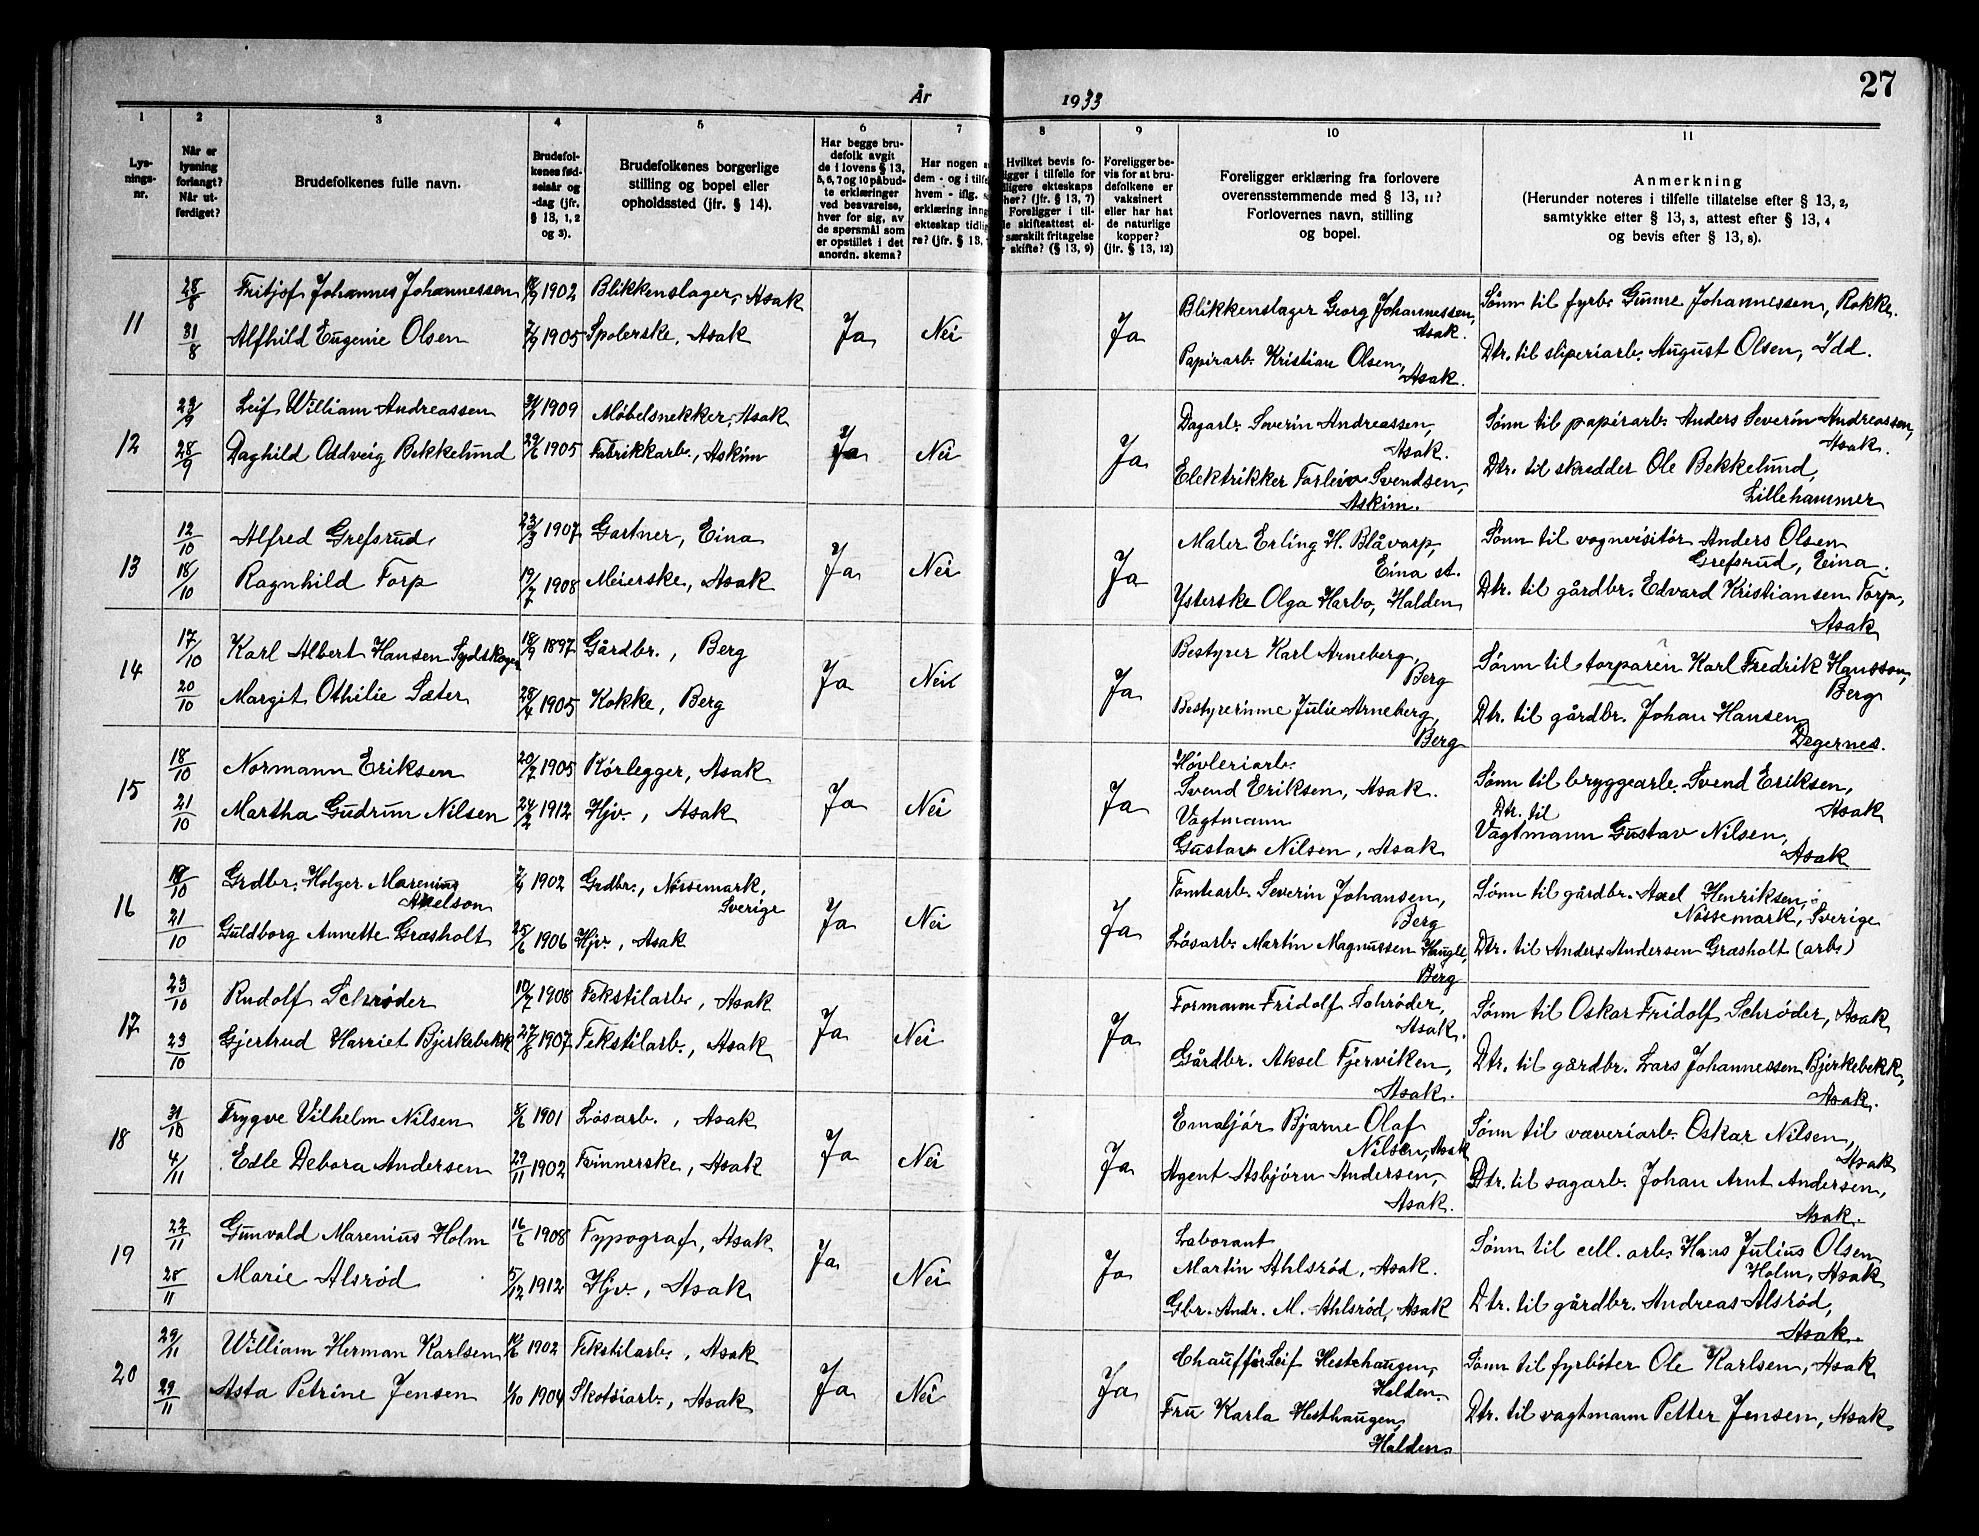 27
År 1933
1 2 3 4 5 6 7 8 9 10 11
Lys-
nings-
nr.
Når er
lysning
forlangt?
Når ut-
ferdiget?
Brudefolkenes fulle navn.
Brudefol-
kenes fød-
selsår og
-dag (jfr.
§ 13, 1, 2
og 3).
Brudefolkenes borgerlige
stilling og bopel eller
opholdssted (jfr. § 14).
Har begge bru-
defolk avgit
de i lovens § 13,
5, 6, 7 og 10 påbud-
te erklæringer
ved besvarelse,
hver for sig, av
de spørsmål som
er opstillet i det
anordn. skema?
Har nogen a
dem - og i tilfe
hvem - iflg.
erklæring inng
ekteskap tidlig
re? (jfr. § 13,
Hvilket bevis fo-
ligger i tilfelle for
ligere ekteskaps
her? (jfr. § 13, 7)
Foreligger i til-
le skifteattest el-
særskilt fritagelse
skifte? (§ 13, 9)
Foreligger be-
vis for at bru-
defolkene er
vaksinert
eller har hat
de naturlige
kopper?
(jfr. § 13, 12)
Foreligger erklæring fra forlovere
overensstemmende med § 13, 11?
Forlovernes navn, stilling
og bopel.
Anmerkning
(Herunder noteres i tilfelle tillatelse efter § 13, 2,
samtykke etter § 13, 3, attest efter § 13, 4
og bevis efter § 13, 8).
11
28/8 Fritjof Johannes Johannessen 1902 Blikkenslager, Asak
31/8 Alfhild Eugenie Olsen 1905 Spolerske, Asak
Ja Nei Ja
Blikkenslager Georg Johannessen,
Asak.
Papirarb. Kristian Olsen,
Asak.
Sønn til fyrb. Gunne Johannessen, Rokke.
Dtr. til sliperiarb. August Olsen, Idd.
12
23/9 Leif William Andreassen 1909 Møbelsnekker, Asak
28/9 Daghild Oddveig Bekkelund 1905 Fabrikkarb., Askim
Ja Nei Ja
Dagarb. Severin Andreassen,
Asak.
Elektrikker Torleiv Svendsen,
Askim.
Sønn til papirarb. Anders Severin Andreassen,
Asak.
Dtr. til skredder Ole Bekkelund,
Lillehammer
13
12/10 Alfred Grefsrud 23/3 1907 Gartner, Eina
18/10 Ragnhild Torp 19/7 1908 Meierske, Asak
Ja Nei Ja
Maler Erling H. Blåvarp,
Eina st.
Ysterske Olga Harbo, Halden
Sønn til vognvisitør Anders Olsen
Grefsrud, Eina.
Dtr. til gårdbr. Edvard Kristiansen Torp,
Asak
14
17/10 Karl Albert Hansen Sydskogen 1897 Gårdbr., Berg
20/10 Margit Othilie Sæter 28/4 1905 Kokke, Berg
Ja Nei Ja
Bestyrer Karl Arneberg,
Berg
Bestyrerinne Julie Arneberg,
Berg
Sønn til torparen Karl Fredrik Hansson,
Berg
Dtr. til gårdbr. Johan Hansen
Degernes.
15
18/10 Normann Eriksen 20/7 1905 Rørlegger, Asak
21/10 Martha Gudrun Nilsen 24/2 1912 Hjv., Asak
Ja Nei Ja
Høvleriarb.
Svend Eriksen, Asak.
Vagtmann
Gustav Nilsen, Asak
Sønn til bryggearb. Svend Eriksen,
Asak
Dtr. til
Vagtmann Gustav Nilsen,
Asak
16
/10 Grdbr. Holger Marenius
Axelson 1902 Grdbr., Nössemark,
Sverige
21/10 Guldborg Annette Græsholt 25/6 1906 Hjv., Asak
Ja Nei Ja
Tomtearb. Severin Johansen,
Berg
Løsarb. Martin Magnussen Haugle,
Berg
Sønn til gårdbr. Axel Henriksen,
Nössemark, Sverige
Dtr. til Anders Andersen Græsholt (arb.)
17
23/10 Rudolf Schrøder 10/7 1908 Tekstilarb., Asak
23/10 Gjertrud Harriet Bjerkebekk 27/8 1907 Tekstilarb., Asak
Ja Nei Ja
Formann Fridolf Schrøder,
Asak.
Gårdbr. Aksel Tjerviken,
Asak.
Sønn til Oskar Fridolf Schrøder, Asak
Dtr. til gårdbr. Lars Johannessen Bjerkebekk,
Asak.
18
31/10 Trygve Vilhelm Nilsen 8/6 1901 Løsarb., Asak
4/11 Edle Debora Andersen 29/11 1902 Tvinnerske, Asak
Ja Nei Ja
Emaljør Bjarne Olaf
Nilsen, Asak
Agent Asbjørn Andersen,
Asak.
Sønn til væveriarb. Oskar Nilsen,
Asak
Dtr. til sagarb. Johan Arnt Andersen,
Asak.
19
22/11 Gunvald Marenius Holm 16/6 1908 Typograf, Asak
28/11 Marie Alsrød 5/12 1912 Hjv., Asak
Ja Nei Ja
Laborant
Martin Ahlsrød, Asak.
Gbr. Andr. M. Ahlsrød, Asak
Sønn til cell. arb. Hans Julius Olsen
Holm, Asak
Dtr. til gårdbr. Andreas Alsrød,
Asak.
20
29/11 William Herman Karlsen 1902 Tekstilarb., Asak
29/11 Asta Petrine Jensen 1/10 1904 Skotøiarb., Asak
Ja Nei Ja
Chauffør Leif Hesthaugen,
Halden
Fru Karla Hesthaugen,
Halden
Sønn til fyrbøter Ole Karlsen, Asak
Dtr. til vagtmann Petter Jensen, Asak